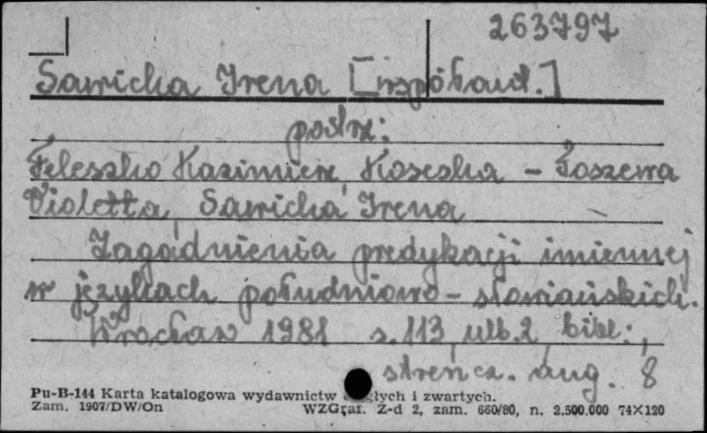 263797
Sawicka Irena [współaut.]
patrz:
Feleszko Kazimierz, Koseska - Toszewa
Violetta, Sawicka Irena
Zagadnienia predykacji imiennej
w językach południowo - słowiańskich.
Wrocław 1981 s. 113, nlb. 2 bibl.;
streszcz. ang. 8
Pu-B-144 Karta katalogowa wydawnictw ciągłych i zwartych.
Zam. 1907/DW/On WZGraf. Z-d 2, zam. 660/80, n. 2.500.000 74×120